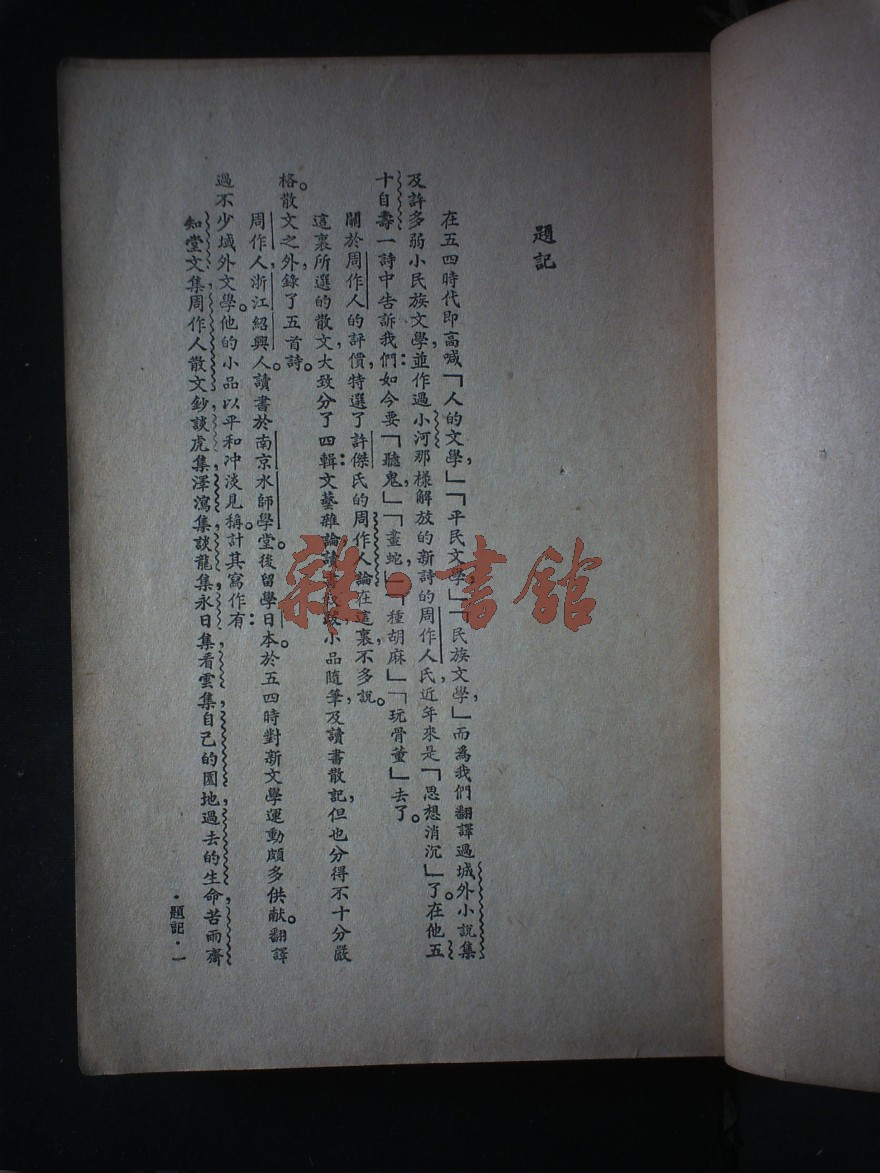 題記
在五四時代即高喊「人的文學,」「平民文學,」「民族文學,」而為我們翻譯過域外小說集
及許多弱小民族文學,並作過小河那樣解放的新詩的周作人氏,近年來是「思想消沉」了。在他五
十自壽一詩中告訴我們:如今要「聽鬼,」「畫蛇,」「種胡麻」「玩骨董」去了。
關於周作人的評價,特選了許傑氏的周作人論在這裏,不多說。
這裏所選的散文大致分了四輯:文藝雜論,讀書敍跋,小品隨筆,及讀書散記,但也分得不十分嚴
格。散文之外,錄了五首詩。
周作人,浙江紹興人。讀書於南京水師學堂。後留學日本。於五四時對新文學運動頗多供献。翻譯
過不少域外文學。他的小品以平和冲淡見稱。計其寫作有:
知堂文集,周作人散文鈔,談虎集,澤瀉集,談龍集,永日集,看雲集,自己的園地,過去的生命,苦雨齋
•題記•一
雜•書館